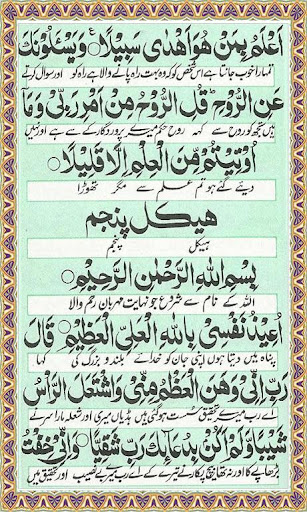 اَعْلَمُ بِمَنْ هُوَ اَهْدٰى سَبِيْلًا ۝ وَيَسْـَٔلُوْنَكَ
تمہارا خوب جانتا ہے اس شخص کو کہ وہ بہت راہ پانے والا ہے راہ کو اور سوال کرتے
عَنِ الرُّوْحِ ؕ قُلِ الرُّوْحُ مِنْ اَمْرِ رَبِّيْ وَمَآ
ہیں تجھ کو روح سے کہہ روح حکم میرے پروردگار کے سے ہے اور نہیں
اُوْتِيْتُمْ مِّنَ الْعِلْمِ اِلَّا قَلِيْلًا ۝
دیئے گئے ہو تم علم سے مگر تھوڑا
هيكل پنجم
ہیکل پنجم
بِسْمِ اللهِ الرَّحْمٰنِ الرَّحِيْمِ ۝
اللہ کے نام سے شروع جو نہایت مہربان رحم والا
اُعِيْذُ نَفْسِيْ بِاللهِ الْعَلِيِّ الْعَظِيْمِ ۝ قَالَ
پناہ میں دیتا ہوں اپنی جان کو خدائے بلند و بزرگ کی کہا
رَبِّ اِنِّيْ وَهَنَ الْعَظْمُ مِنِّيْ وَاشْتَعَلَ الرَّاْسُ
اے رب میرے تحقیق سست ہوگئی ہیں ہڈیاں میری اور شعلہ مارا سر نے
شَيْبًا وَّلَمْ اَكُنْۢ بِدُعَآئِكَ رَبِّ شَقِيًّا ۝ وَاِنِّيْ خِفْتُ
بڑھاپے کا اور نہ تھا میں پکارنے تیرے کے اے رب میرے بے نصیب اور تحقیق میں